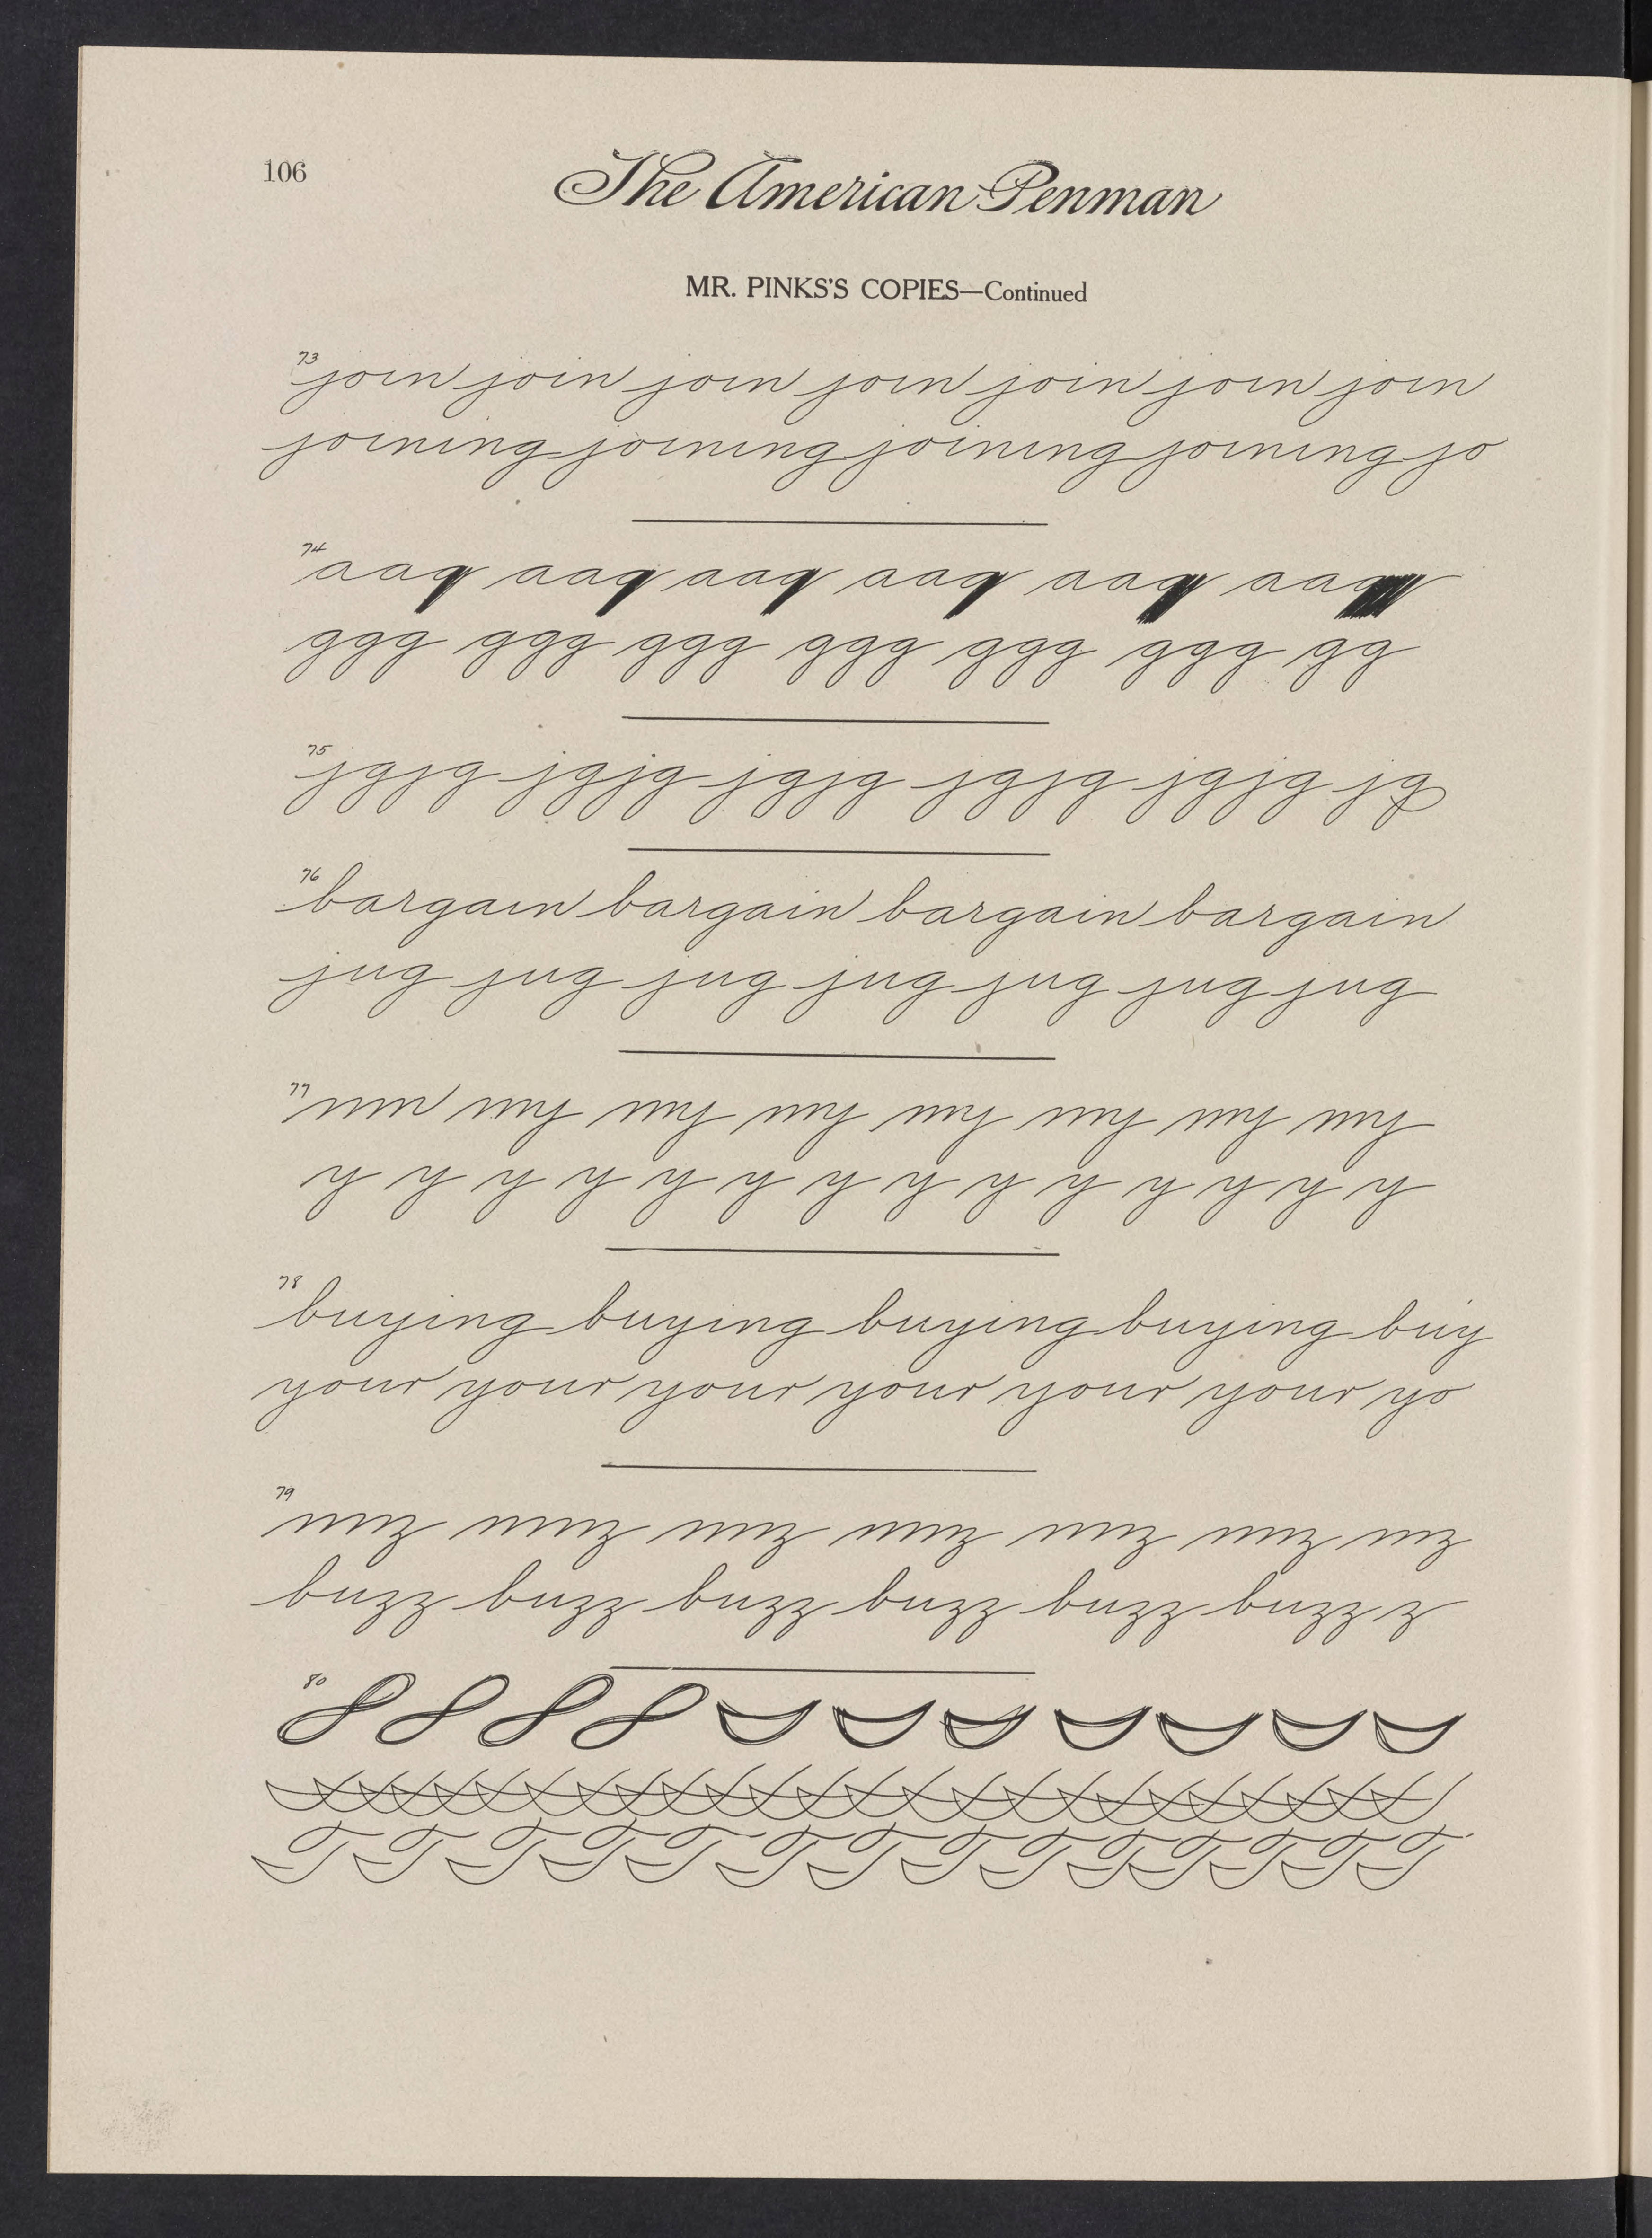 106
The American Penman
MR. PINKS'S COPIES—Continued
73 join join join join join join join
joining joining joining joining jo
74 aag aag aag aag aag aag
ggg ggg ggg ggg ggg ggg gg
75 jgjg jgjg jgjg jgjg jgjg jg
76 bargain bargain bargain bargain
jug jug jug jug jug jug jug
77 nm my my my my my my my
y y y y y y y y y y y y y y
78 buying buying buying buying buy
your your your your your your yo
79 nnz nnz nnz nnz nnz nnz nz
buzz buzz buzz buzz buzz buzz z
80